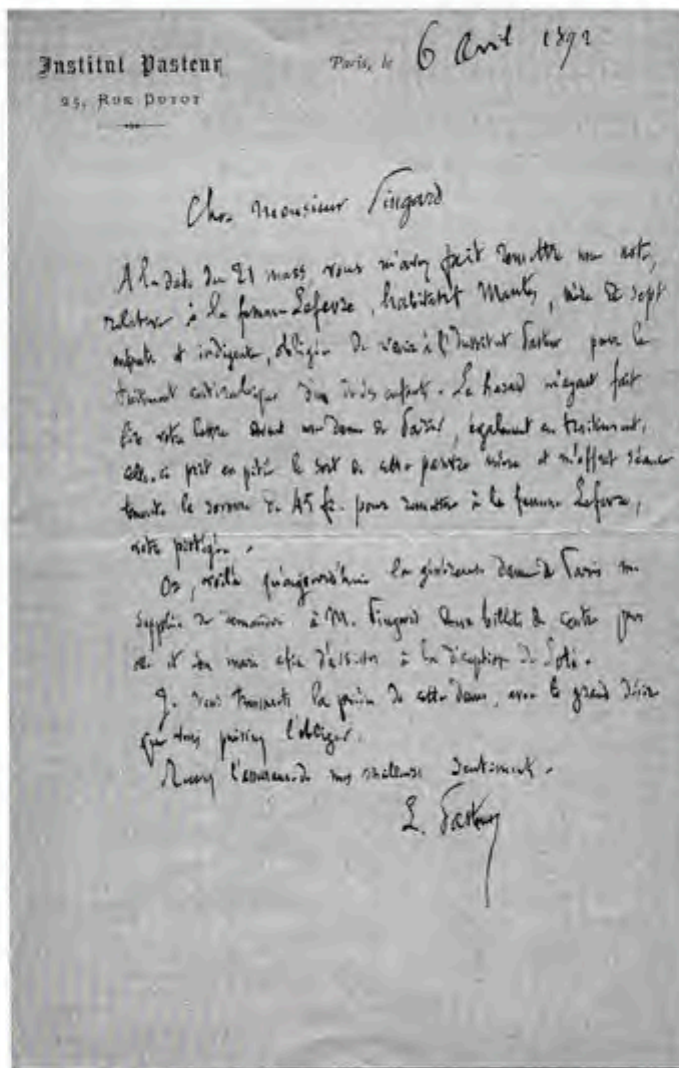 Institut Pasteur
25, RUE DUTOT
Paris, le 6 Avril 1892
Cher Monsieur Pingard
A la date du 21 mars, vous m'avez fait remettre une note,
relative à la femme Lefevre, habitant Mantes, mère de sept
enfants et indigente, obligée de venir à l'Institut Pasteur pour le
traitement antirabique d'un de ses enfants. Le hasard m'ayant fait
lire votre lettre devant une dame de Paris, également en traitement,
celle-ci prit en pitié le sort de cette pauvre mère et m'offrit séance
tenante la somme de 45 fr. pour remettre à la femme Lefevre,
votre protégée.
Or, voilà qu'aujourd'hui la généreuse dame de Paris me
supplie de demander à M. Pingard deux billets de centre pour
elle et son mari afin d'assister à la réception de Loti.
Je vous transmets la prière de cette dame, avec le grand désir
que vous puissiez l'obliger.
Recevez l'assurance de mes meilleurs sentiments.
L. Pasteur